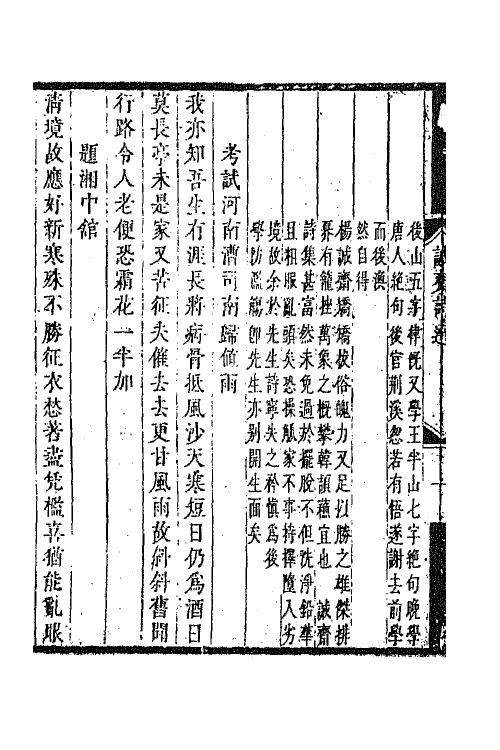 誠齋詩選
後山五字律旣又學王半山七字絶句晚學
唐人絶句後官荆溪忽若有悟遂謝去前學
而後渙
然自得
楊誠齋矯矯拔俗魄力又足以勝之雄傑排
奡有籠挫萬象之槪攀韓頡蘇宜也　誠齋
詩集甚富然未免過於擺脫不但洗淨鉛華
且粗服亂頭矣恐操觚家不事持擇墮入劣
境故余於先生詩寧失之矜愼爲後
學防濫觴卽先生亦别開生面矣
考試河南漕司南歸值雨
我亦知吾生有涯長將病骨抵風沙天寒短日仍爲酒日
莫長亭未是家又苦征夫催去去更甘風雨故斜斜舊聞
行路令人老便恐霜花一半加
題湘中舘
清境故應好新寒殊不勝征衣愁著盡凭檻喜猶能亂眼